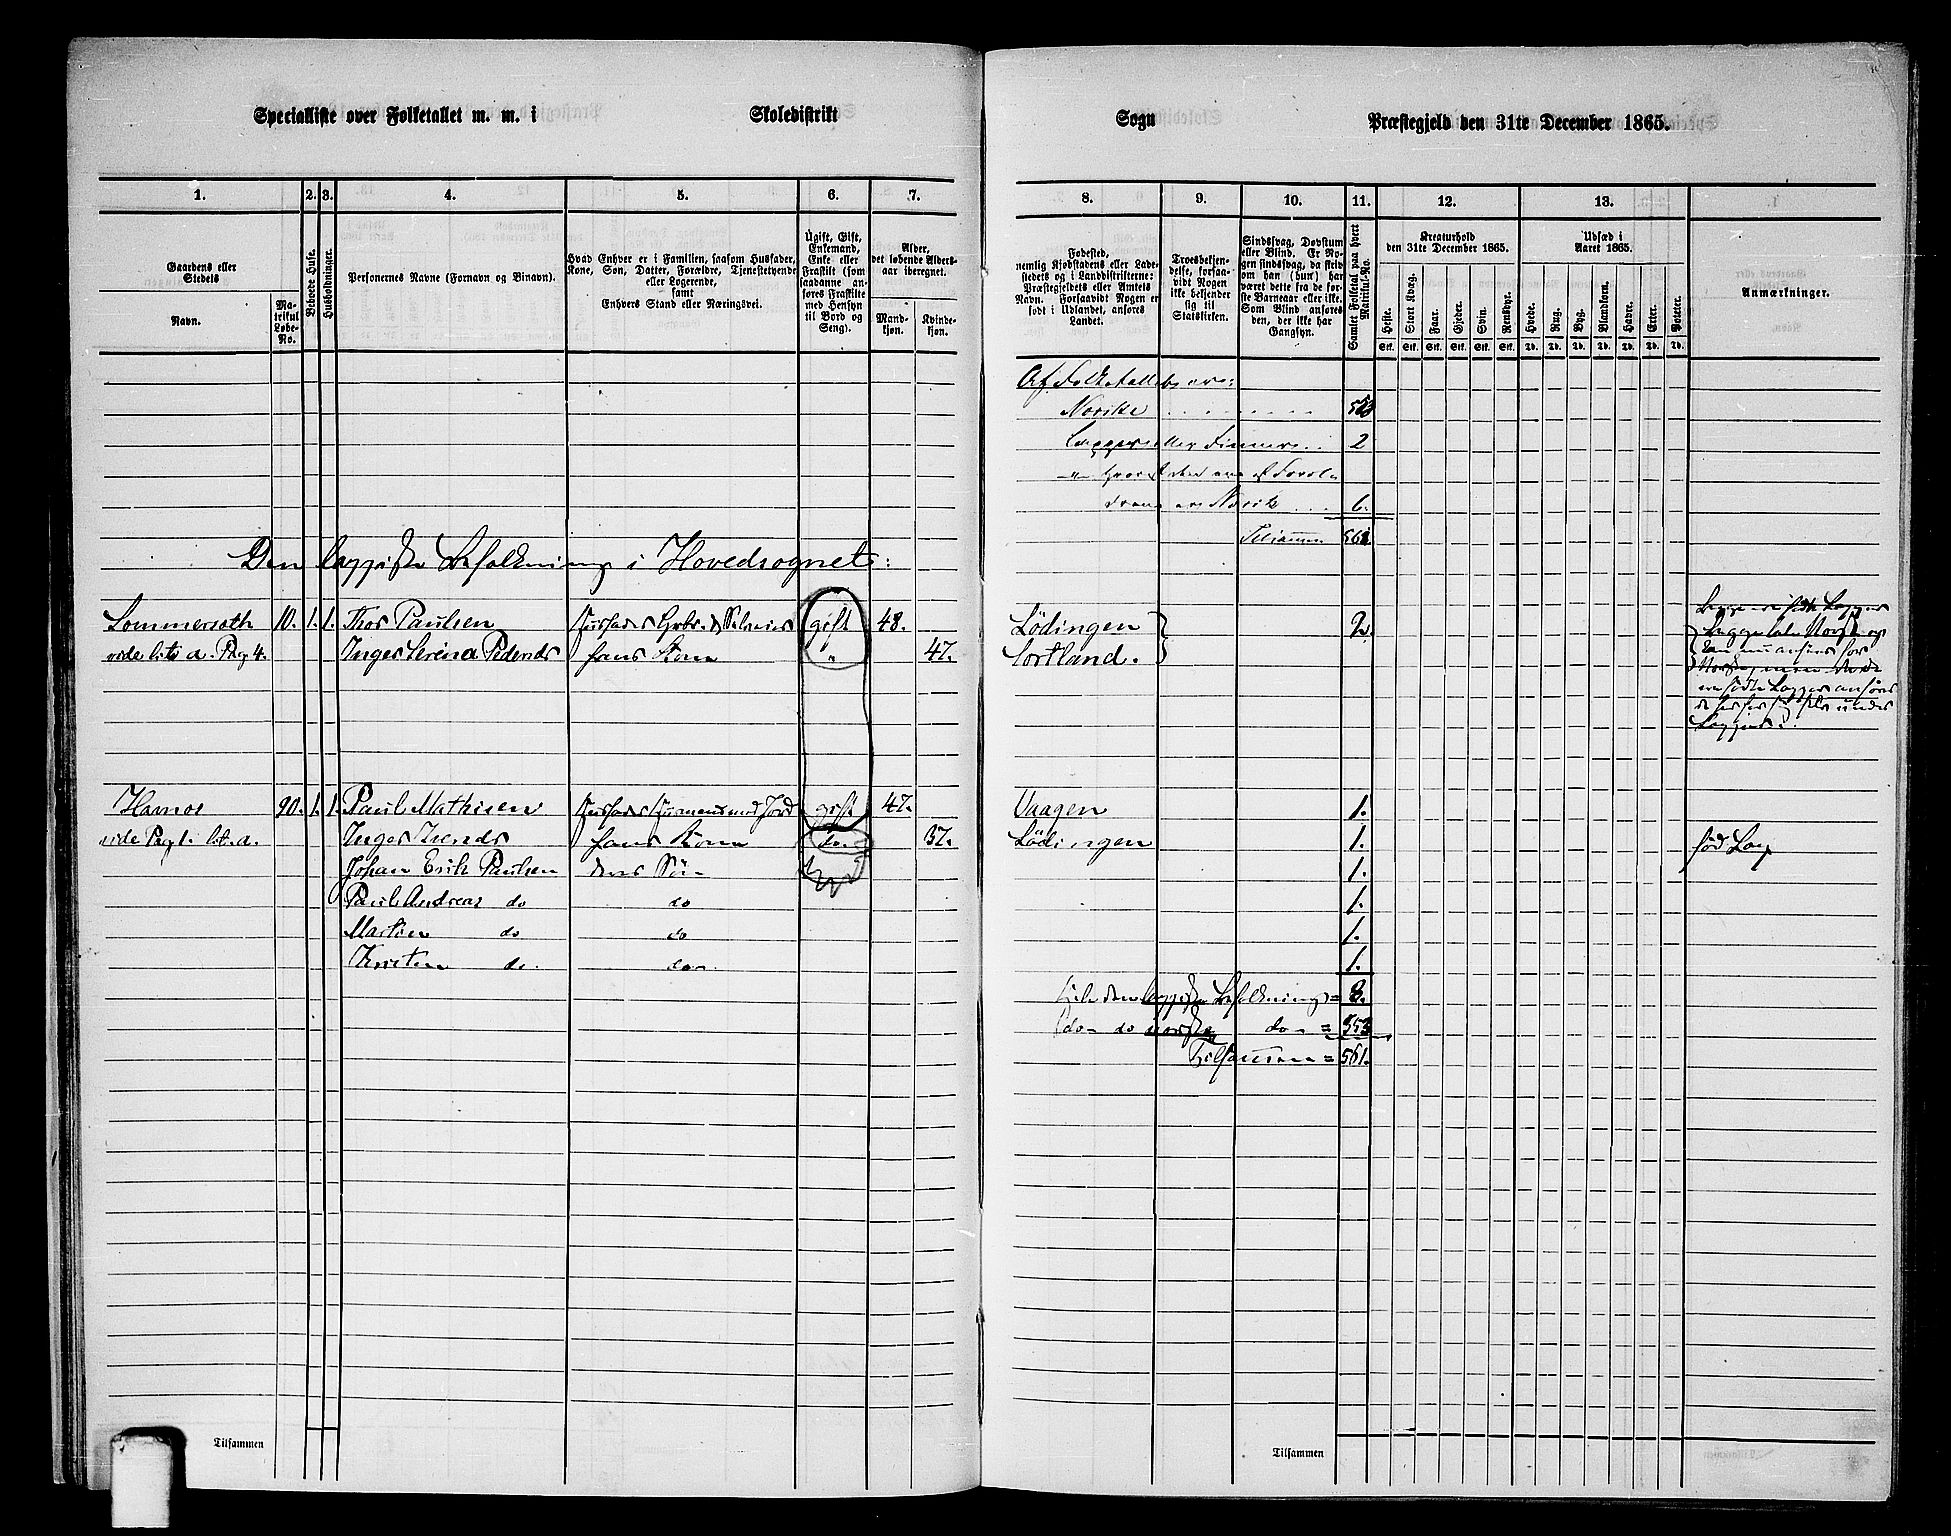 Specialliste over Folketallet m. m. i Skoledistrikt
1. 2. 3. 4. 5. 6. 7.
Gaardens eller Stedets
Navn.
Matrikul Løbe-No.
Beboede Huse.
Husholdninger.
Personernes Navne (Fornavn og Binavn).
Hvad Enhver er i Familien, saasom Husfader, Kone, Søn, Datter, Forældre, Tjenestetyende eller Logerende,
samt
Enhvers Stand eller Næringsvei.
Ugift, Gift, Enkemand, Enke eller Fraskilt (som saadanne anføres Fraskilte med Hensyn til Bord og Seng).
Alder, det løbende Aldersaar iberegnet.
Mandkjøn.
Kvindekjøn.
Den lappiske Befolkning i Hovedsognet:
Sommersæth 10. 1. 1. Thor Paulsen gift 48.
vide litr a. Pag 4. Inger Serina Pedersd: hans Kone " 47.
Hamnes 90. 1. 1. Paul Mathisen gift 47.
vide Pag 1. lit. a. Inger hans Kone do. 37.
Johan Erik Paulsen deres Søn
Paul Andreas do do
Martin do do
Kristen do do
Tilsammen
Sogn Præstegjeld den 31te December 1865.
8. 9. 10. 11. 12. 13. 1.
Fødested, nemlig Kjøbstadens eller Ladestedets og i Landdistrikterne: Præstegjeldets eller Amtets Navn. Forsaavidt Nogen er født i Udlandet, anføres Landet.
Troesbekjendelse, forsaavidt Nogen ikke bekjender sig til Statskirken.
Sindssvag, Døvstum eller Blind. Er Nogen sindssvag, da skrives om han (hun) har været dette fra de første Barneaar eller ikke. Som Blind anføres den, der ikke har Gangsyn.
Samlet Folketal paa hvert Matrikul-No.
Kreaturhold den 31te December 1865.
Heste. Stort Kvæg. Faar. Gjeder. Svin. Rensdyr.
Stk. Stk. Stk. Stk. Stk. Stk.
Udsæd i Aaret 1865.
Hvede. Rug. Byg. Blandkorn. Havre. Erter. Poteter.
Td. Td. Td. Td. Td. Td. Td.
Anmærkninger.
Af Folketallet ere:
Norske 553
Lapper eller Finner 2
" hvoraf den ene af Foræl-
drene er Norsk 6.
Tilsammen 561
Lödingen 2.
Sortland.
Vaagen 1.
Lödingen 1. född Lap
1.
1.
1.
1.
Hele den lappiske Befolkning = 8.
do do norske do = 553
Tilsammen = 561.
Tilsammen